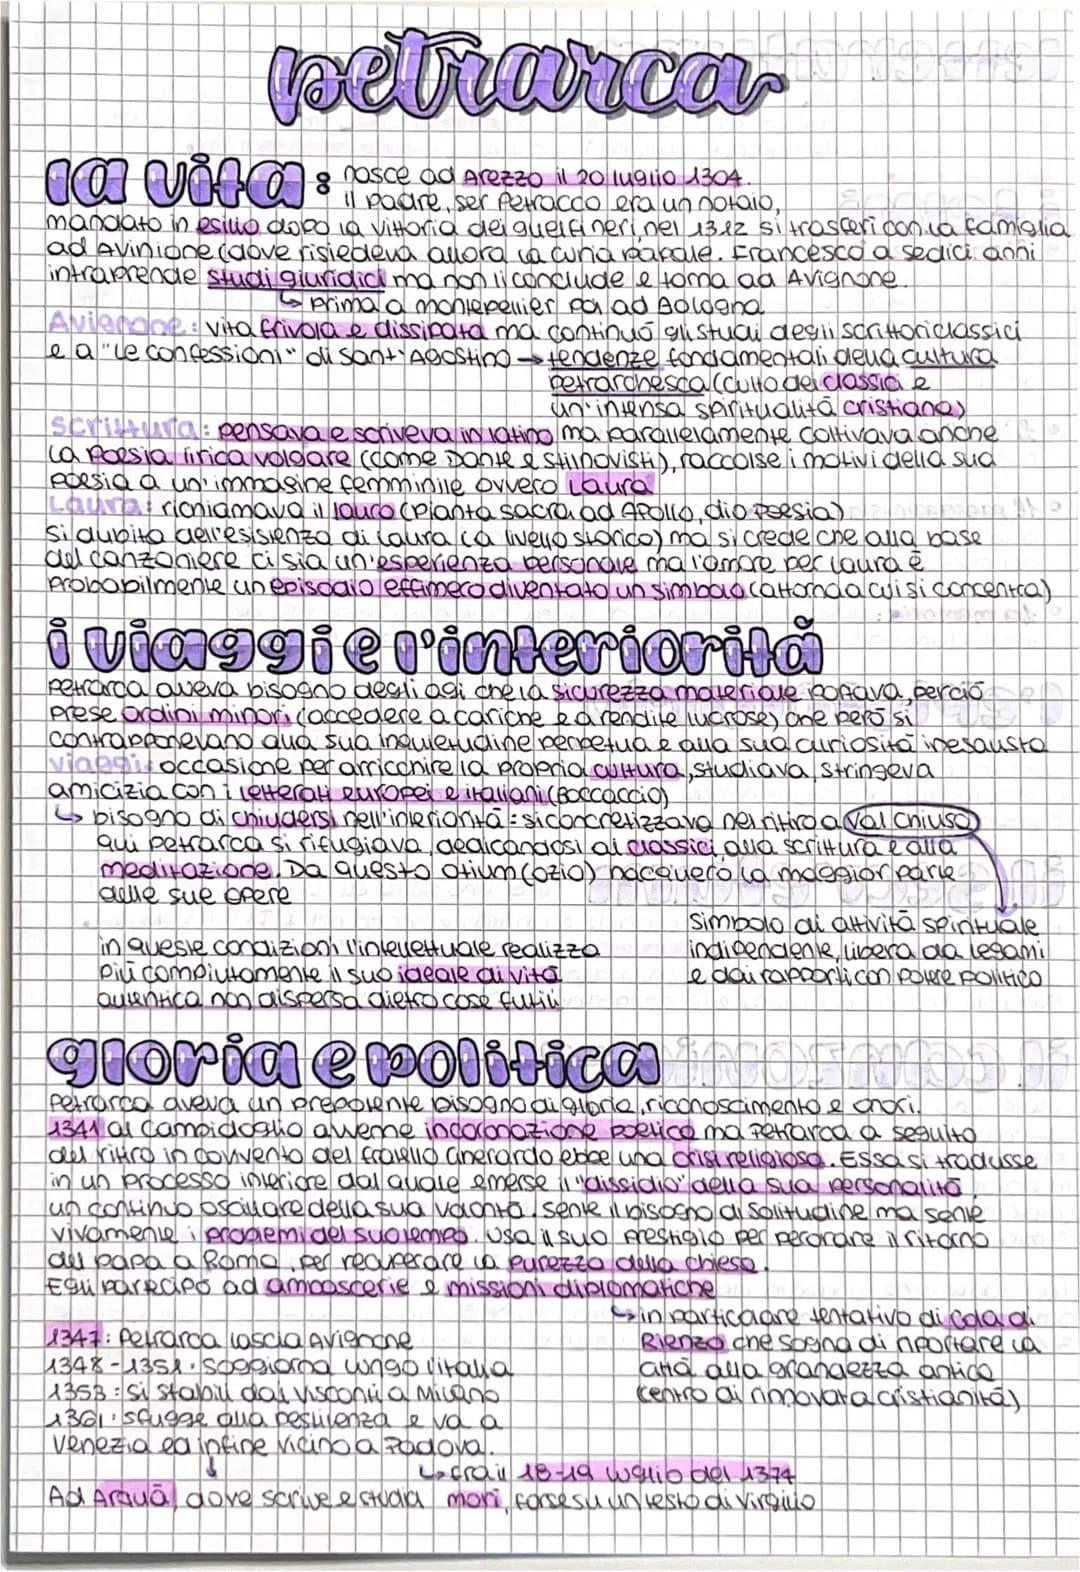 petrarca
la vita: nasce ad Arezzo il 20 luglio 1304.
il padre, ser Petracco era un notaio,
mandato in esilio dopo la vittoria dei guelfi neri, nel 1312 si trasferì con la famiglia
ad Avinione (dove risiedeva allora la curia papale. Francesco a sedici anni
intraprende studi giuridici ma non li conclude e torna ad Avignone.
↳ prima a montepellier poi ad Bologna
Avignone: vita frivola e dissipata ma continuò gli studi degli scrittori classici
e a "le confessioni" di sant'Agostino → tendenze fondamentali della cultura
petrarchesca (culto dei classici e
un'intensa spiritualità cristiana)
scrittura: pensava e scriveva in latino ma parallelamente coltivava anche
la poesia lirica volgare (come Dante e stilnovisti), raccolse i motivi della sua
poesia a un'immagine femminile ovvero Laura
Laura: richiamava il lauro (pianta sacra ad Apollo, dio poesia)
si dubita dell'esistenza di Laura (a livello storico) ma si crede che alla base
del canzoniere ci sia un'esperienza personale ma l'amore per laura è
probabilmente un episodio effimero diventato un simbolo (attorno a cui si concentra)
i viaggi e l'interiorità
Petrarca aveva bisogno degli agi che la sicurezza materiale portava, perciò
prese ordini minori (accedere a cariche e a rendite lucrose) che però si
contrapponevano alla sua inquietudine perpetua e alla sua curiosità inesausta
viaggi: occasione per arricchire la propria cultura, studiava, stringeva
amicizia con i letterati europei e italiani (Boccaccio)
↳ bisogno di chiudersi nell'interiorità: si concretizzava nel ritiro a Val Chiusa
qui petrarca si rifugiava, dedicandosi ai classici, alla scrittura e alla
meditazione. Da questo otium (ozio) nacquero la maggior parte
delle sue opere
simbolo di attività spirituale
indipendente, libera da legami
e dai rapporti con potere politico
in queste condizioni l'intellettuale realizza
più compiutamente il suo ideale di vita
autentica non dispersa dietro cose futili
gloria e politica
Petrarca aveva un prepotente bisogno di gloria, riconoscimento e onori.
1341 al Campidoglio avvenne incoronazione poetica ma Petrarca a seguito
del ritiro in convento del fratello Gherardo ebbe una crisi religiosa. Essa si tradusse
in un processo interiore dal quale emerse il "dissidio" della sua personalità,
un continuo oscillare della sua volontà. Sente il bisogno di solitudine ma sente
vivamente i problemi del suo tempo. Usa il suo prestigio per perorare il ritorno
del papa a Roma, per recuperare la purezza della chiesa.
Egli partecipò ad ambascerie e missioni diplomatiche
↳ in particolare tentativo di Cola di
Rienzo che sogna di riportare la
città alla grandezza antica
(centro di rinnovata cristianità)
1347: Petrarca lascia Avignone
1348-1351: Soggiorna lungo l'italia
1353: Si stabilì dai Visconti a Milano
1361: sfugge alla pestilenza e va a
Venezia ed infine vicino a Padova.
↳ fra il 18-19 luglio del 1374
morì, forse su un testo di Virgilio
Ad Arquà, dove scrive e studia